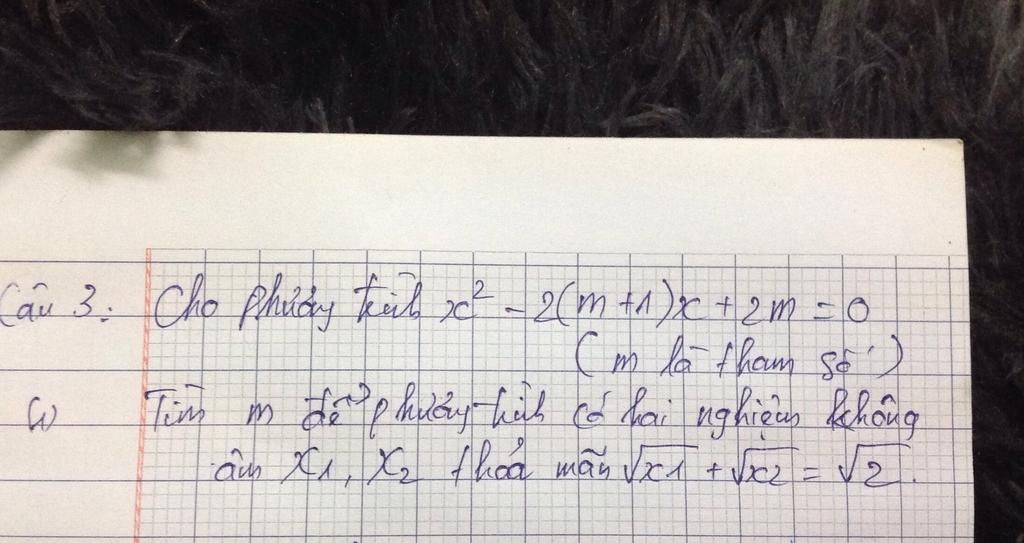 Câu 3: Cho phương trình x² - 2(m+1)x + 2m = 0
(m là tham số)
Tìm m để phương trình có hai nghiệm không
âm x1, x2 thỏa mãn √x1 + √x2 = √2.